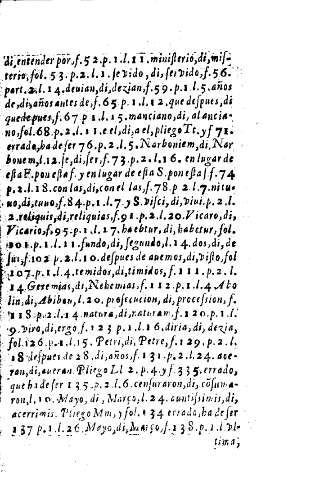 di, entender por, f. 52. p. 1. l. 11. ministerio, di, mis-
terio, fol. 53. p. 2. l. 1. se vido, di, ser vido, f. 56.
part. 2. l. 14. deuian, di, dezian, f. 59. p. 1. l. 5. años
de, di, años antes de, f. 65 p. 1. l. 12. que despues, di
que depues, f. 67 p. 1. l. 15. manciano, di, al ancia-
no, fol. 68. p. 2. l. 11. e el, di, a el, pliego Tt. y f 71.
errado, ha de ser 76. p. 2. l. 5. Narboniem, di, Nar
bonem, l. 12. se, di, ser, f. 73. p. 2. l. 16. en lugar de
esta F. pon esta f. y en lugar de esta S. pon esta s f. 74
p. 2. l. 18. con las, di, con el las, f. 78. p 2. l. 7. nitu-
uo, di, tuuo, f. 84. p. 1. l. 7. y S. visci, di, vici. p. 2. l.
2. reliquis, di, reliquias, f. 91. p. 2. l. 20. Vicaro, di,
Vicario, f. 95. p. 1. l. 17. haebtur, di, habetur, fol.
101 p. 1. l. 11. fundo, di, segundo, l. 14. dos, di, de
sus, f. 102 p. 2. l. 10. despues de auemos, di, visto, fol
107. p. 1. l. 4. temidos, di, timidos, f. 111. p. 2. l.
14. Geremias, di, Nehemias, f. 112. p. 1. l. 4 Abo
lin, di, Abibon, l. 20. prosecucion, di, procession, f.
118. p. 2. l. 14. natura, di, naturam. f. 120. p. 1. l.
9. viro, di, ergo, f. 123 p. 1. l. 16. diria, di, dezia,
fol. 126. p. 1. l. 15. Petri, di, Petre, f. 129. p. 2. l.
18 despues de 28. di, años, f. 131. p. 2. l. 24. ace-
ran, di, aueran. Pliego Ll 2. p. 4. y f. 335. errado,
que ha de ser 135. p. 2. l. 6. censuraron, di, cõsuma-
ron, l. 10. Mayo, di, Março, l. 24. cuntissimis, di,
acerrimis. Pliego Mm, y fol. 134 errado, ha de ser
137 p. 1. l. 26. Mayo, di, Março, f. 138. p. 1. l. vl-
tima,